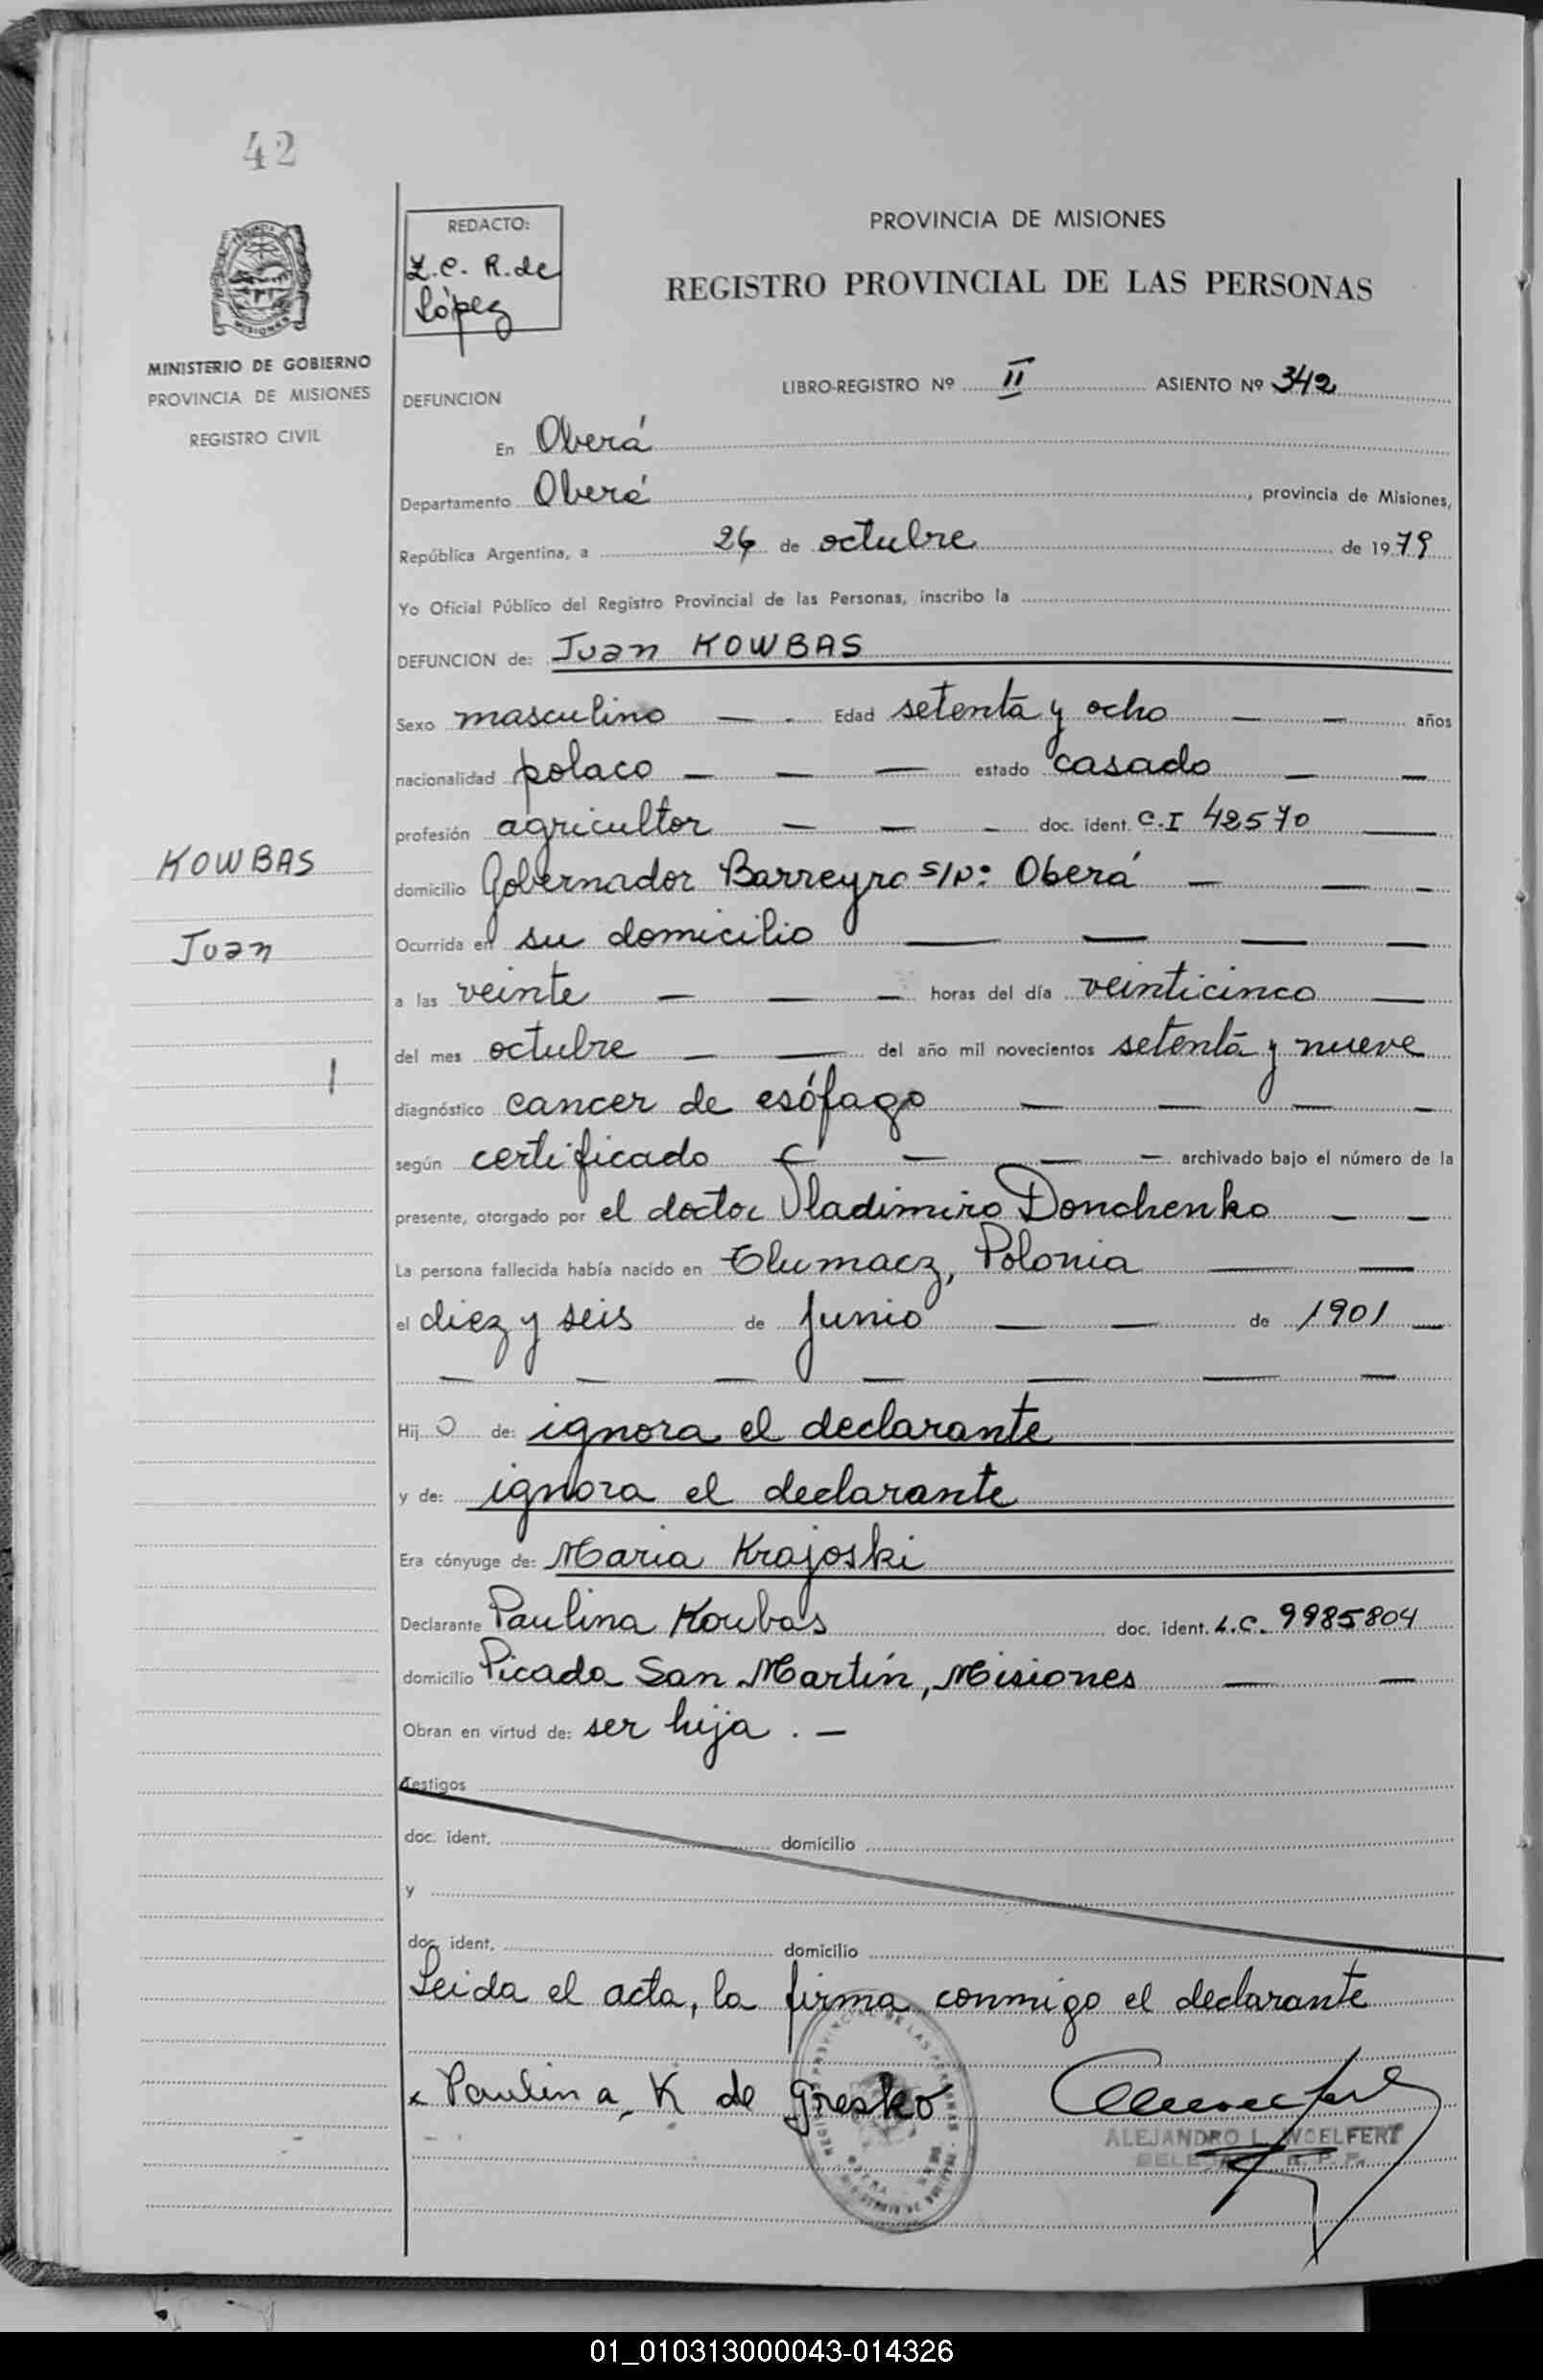 42
MISIONES
MINISTERIO DE GOBIERNO
PROVINCIA DE MISIONES
REGISTRO CIVIL
KOWBAS
Juan
REDACTO:
L.C. R. de
López
PROVINCIA DE MISIONES
REGISTRO PROVINCIAL DE LAS PERSONAS
LIBRO-REGISTRO Nº II ASIENTO Nº 342
DEFUNCION
En Oberá
Departamento Oberá, provincia de Misiones,
República Argentina, a 26 de octubre de 1979
Yo Oficial Público del Registro Provincial de las Personas, inscribo la
DEFUNCION de: Juan KOWBAS
Sexo masculino — . Edad setenta y ocho — — años
nacionalidad polaco — — — estado casado — —
profesión agricultor — — — doc. ident. C.I 42570 —
domicilio Gobernador Barreyro s/nº Oberá — — —
Ocurrida en su domicilio — — — —
a las veinte — — — horas del día veinticinco —
del mes octubre — — del año mil novecientos setenta y nueve
diagnóstico cancer de esófago — — — —
según certificado — — — — archivado bajo el número de la
presente, otorgado por el doctor Vladimiro Donchenko — —
La persona fallecida había nacido en Tlumacz, Polonia — —
el diez y seis de junio — — de 1901 —
— — — — — — —
Hij o de: ignora el declarante
y de: ignora el declarante
Era cónyuge de: Maria Krajoski
Declarante Paulina Koubas doc. ident. L.C. 9985804
domicilio Picada San Martín, Misiones — —
Obran en virtud de: ser hija . —
Testigos
doc. ident. domicilio
y
doc. ident. domicilio
Leida el acta, la firma conmigo el declarante
x Paulina K de Gresko
ALEJANDRO L. WOELFERT
01_010313000043-014326